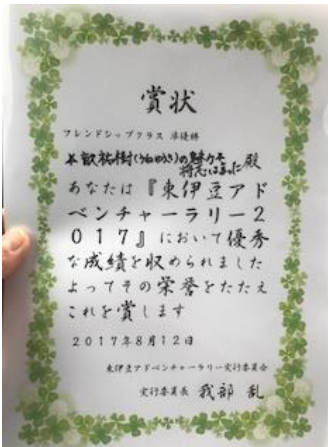 賞状
フレンドシップクラス 準優勝
祐樹(うねゆうき)の魅力を
殿
あなたは『東伊豆アド
ベンチャーラリー2
017』において優秀
な成績を収められました
よってその栄誉をたたえ
これを賞します
2017年8月12日
東伊豆アドベンチャーラリー実行委員会
実行委員長 我部 乱